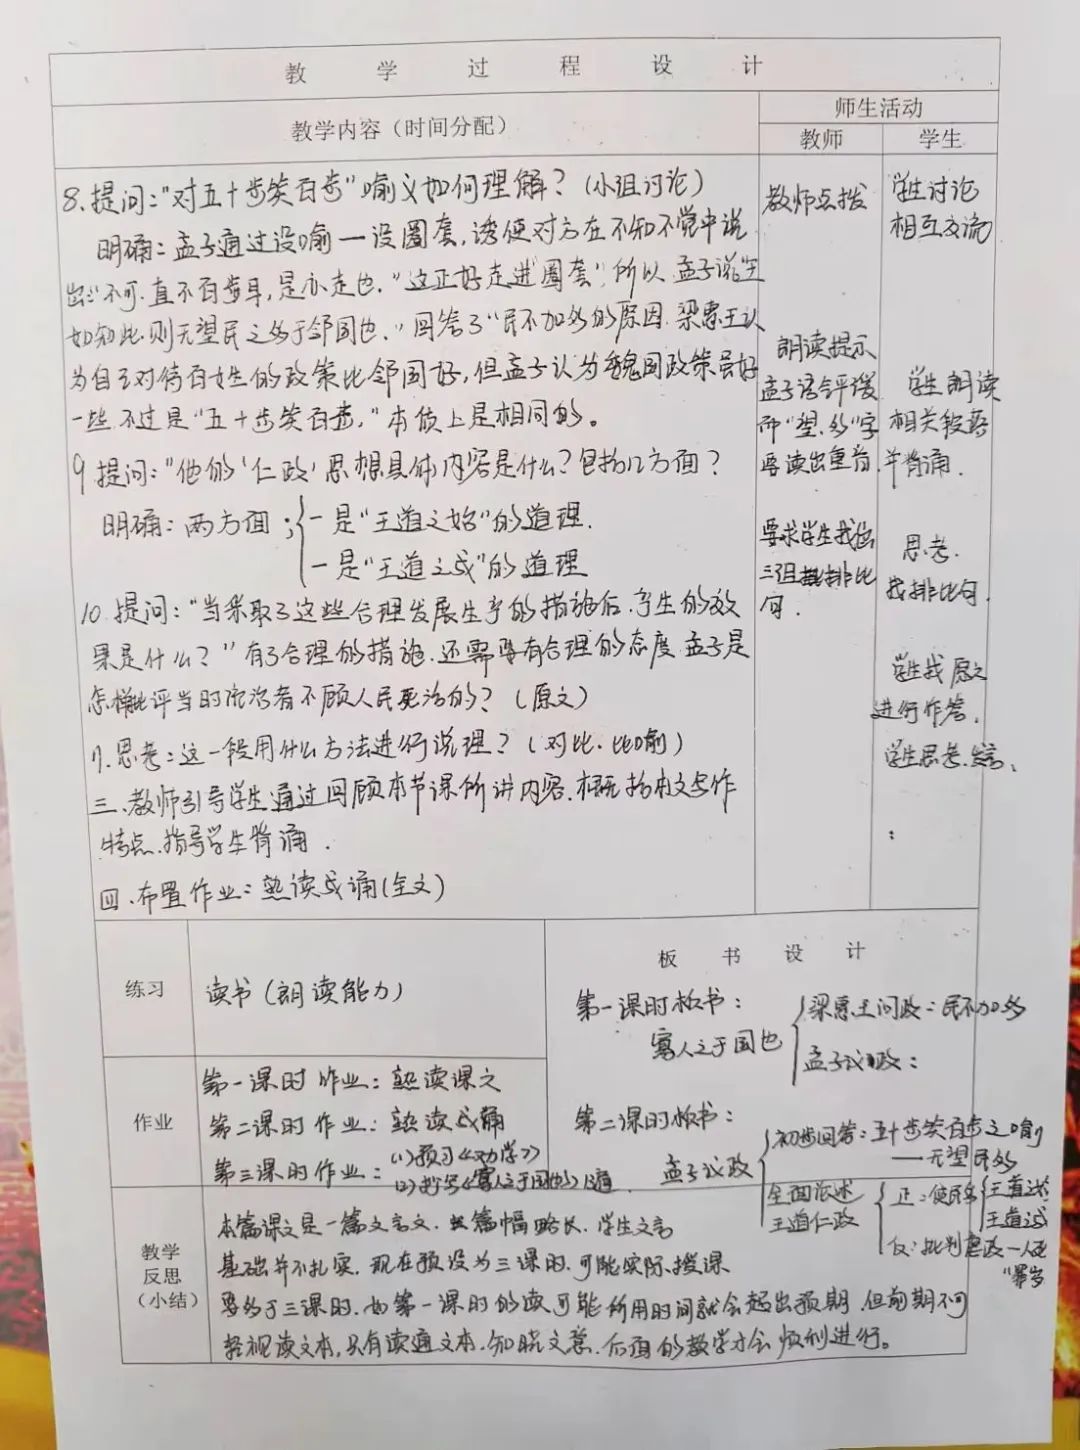 教学过程设计
教学内容（时间分配）
师生活动
教师
学生
8.提问:"对五十步笑百步"喻义如何理解?（小组讨论）
明确:孟子通过设喻一设圈套,诱使对方在不知不觉中说
出:"不可.直不百步耳,是亦走也."这正好走进"圈套",所以.孟子说"王
如知此.则无望民之多于邻国也."回答了"民不加多的原因.梁惠王认
为自己对待百姓的政策比邻国好,但孟子认为魏国政策虽好
一些.不过是"五十步笑百步,"本质上是相同的。
9.提问:"他的'仁政'思想具体内容是什么?包括几方面?
明确:两方面;一是"王道之始"的道理.
一是"王道之成"的道理
10.提问:"当采取了这些合理发展生产的措施后.产生的效
果是什么?"有了合理的措施.还需要有合理的态度.孟子是
怎样批评当时统治者不顾人民死活的?（原文）
思考:这一段用什么方法进行说理?（对比.比喻）
三.教师引导学生通过回顾本节课所讲内容.概括本文写作
特点.指导学生背诵.
四.布置作业:熟读成诵(全文)
教师点拨
朗读提示
孟子语气平缓
而"望、多"字
要读出重音.
要求学生找出
三组排比
句.
学生讨论
相互交流
学生朗读
相关段落
并背诵.
思考.
找排比句.
学生找原文
进行作答.
学生思考.发言、
练习
读书(朗读能力)
作业
第一课时作业:熟读课文
第二课时作业:熟读成诵
第三课时作业:(1)预习《劝学》
(2)《寡人之于国也》
板书设计
第一课时板书:
寡人之于国也
梁惠王问政:民不加多
孟子议政:
第二课时板书:
孟子议政
初步回答:五十步笑百步之喻
——无望民多
全面论述
王道仁政
正:使民多
王道之始
王道之成
反:批判虐政—人死
教学
反思
（小结）
本篇课文是一篇文言文.且篇幅略长.学生文言
基础并不扎实.现在预设为三课时.可能实际授课
要多于三课时.如第一课时的读可能所用时间就会超出预期.但前期不可
轻视读文本,只有读通文本.知晓文意.后面的教学才会顺利进行。